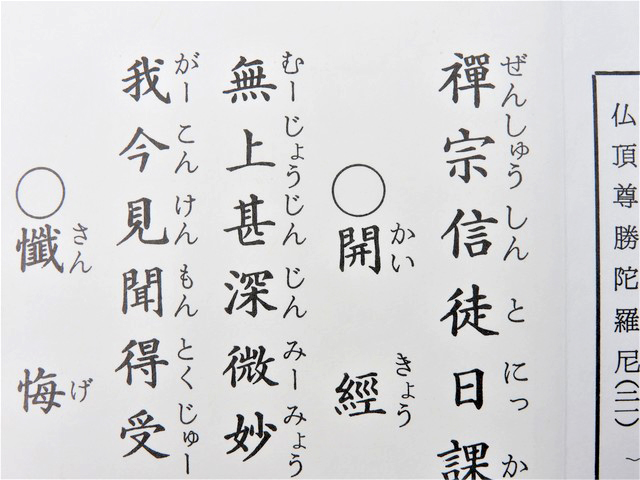 仏頂尊勝陀羅尼(二) ~
ぜんしゅうしんとにっか
禪宗信徒日課
かいきょう
○開經
むーじょうじんじんみーみょう
無上甚深微妙
がーこんけんもんとくじゅー
我今見聞得受
さんげ
○懺悔